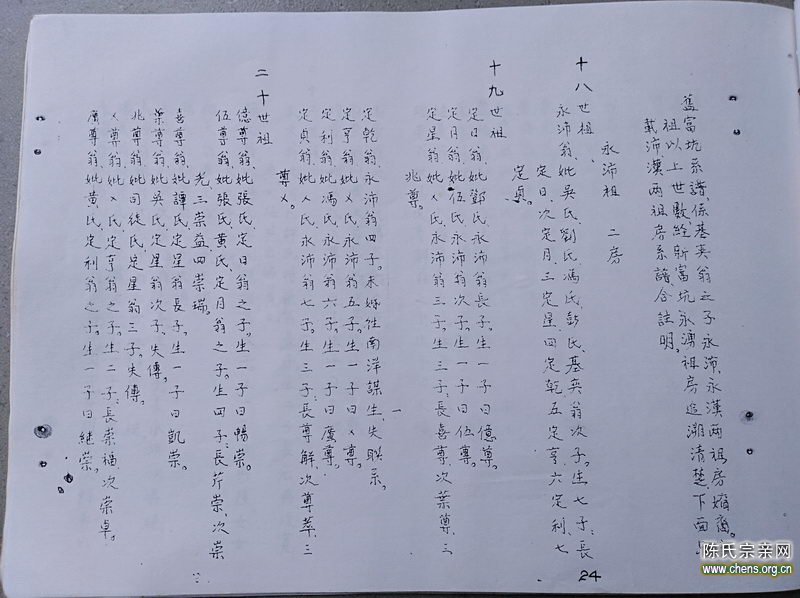 蓝富坑系谱,係基英翁之子永沛、永漢两祖房嫡裔。
祖以上世数,經新富坑永湧祖房追溯清楚,下面只
載沛漢两祖房系譜合註明。
永沛祖 二房
十八世祖
永沛翁,妣吴氏、劉氏、馮氏、彭氏、基英翁次子。生七子:長
定日、次定月、三定星、四定乾、五定亨、六定利、七
定貞。
十九世祖
定日翁、妣鄧氏、永沛翁長子。生一子曰億尊。
定月翁、妣伍氏、永沛翁次子。生一子曰伍尊。
定星翁、妣乂氏、永沛翁三子。生三子:長喜尊、次葉尊、三
兆尊。
定乾翁、永沛翁四子。未婚往南洋謀生、失聯系。
定亨翁、妣乂氏、永沛翁五子。生一子曰乂尊。
定利翁、妣馮氏、永沛翁六子。生一子曰廣尊。
定貞翁、妣乂氏、永沛翁七子。生三子:長尊解、次尊萃、三
尊乂。
二十世祖
億尊翁、妣張氏、定日翁之子。生一子曰暢崇。
伍尊翁、妣張氏、黄氏、定月翁之子。生四子:長芹崇、次崇
光、三崇益、四崇瑞。
喜尊翁、妣譚氏、定星翁長子。生一子曰凱崇。
葉尊翁、妣吴氏、定星翁次子、失傳。
兆尊翁、妣司徒氏、定星翁三子。失傳。
乂尊翁、妣乂氏、定亨翁之子。生二子:長崇福、次崇卓。
廣尊翁、妣黄氏、定利翁之子。生一子曰继崇。
24
陈氏宗亲网
www.chens.org.cn